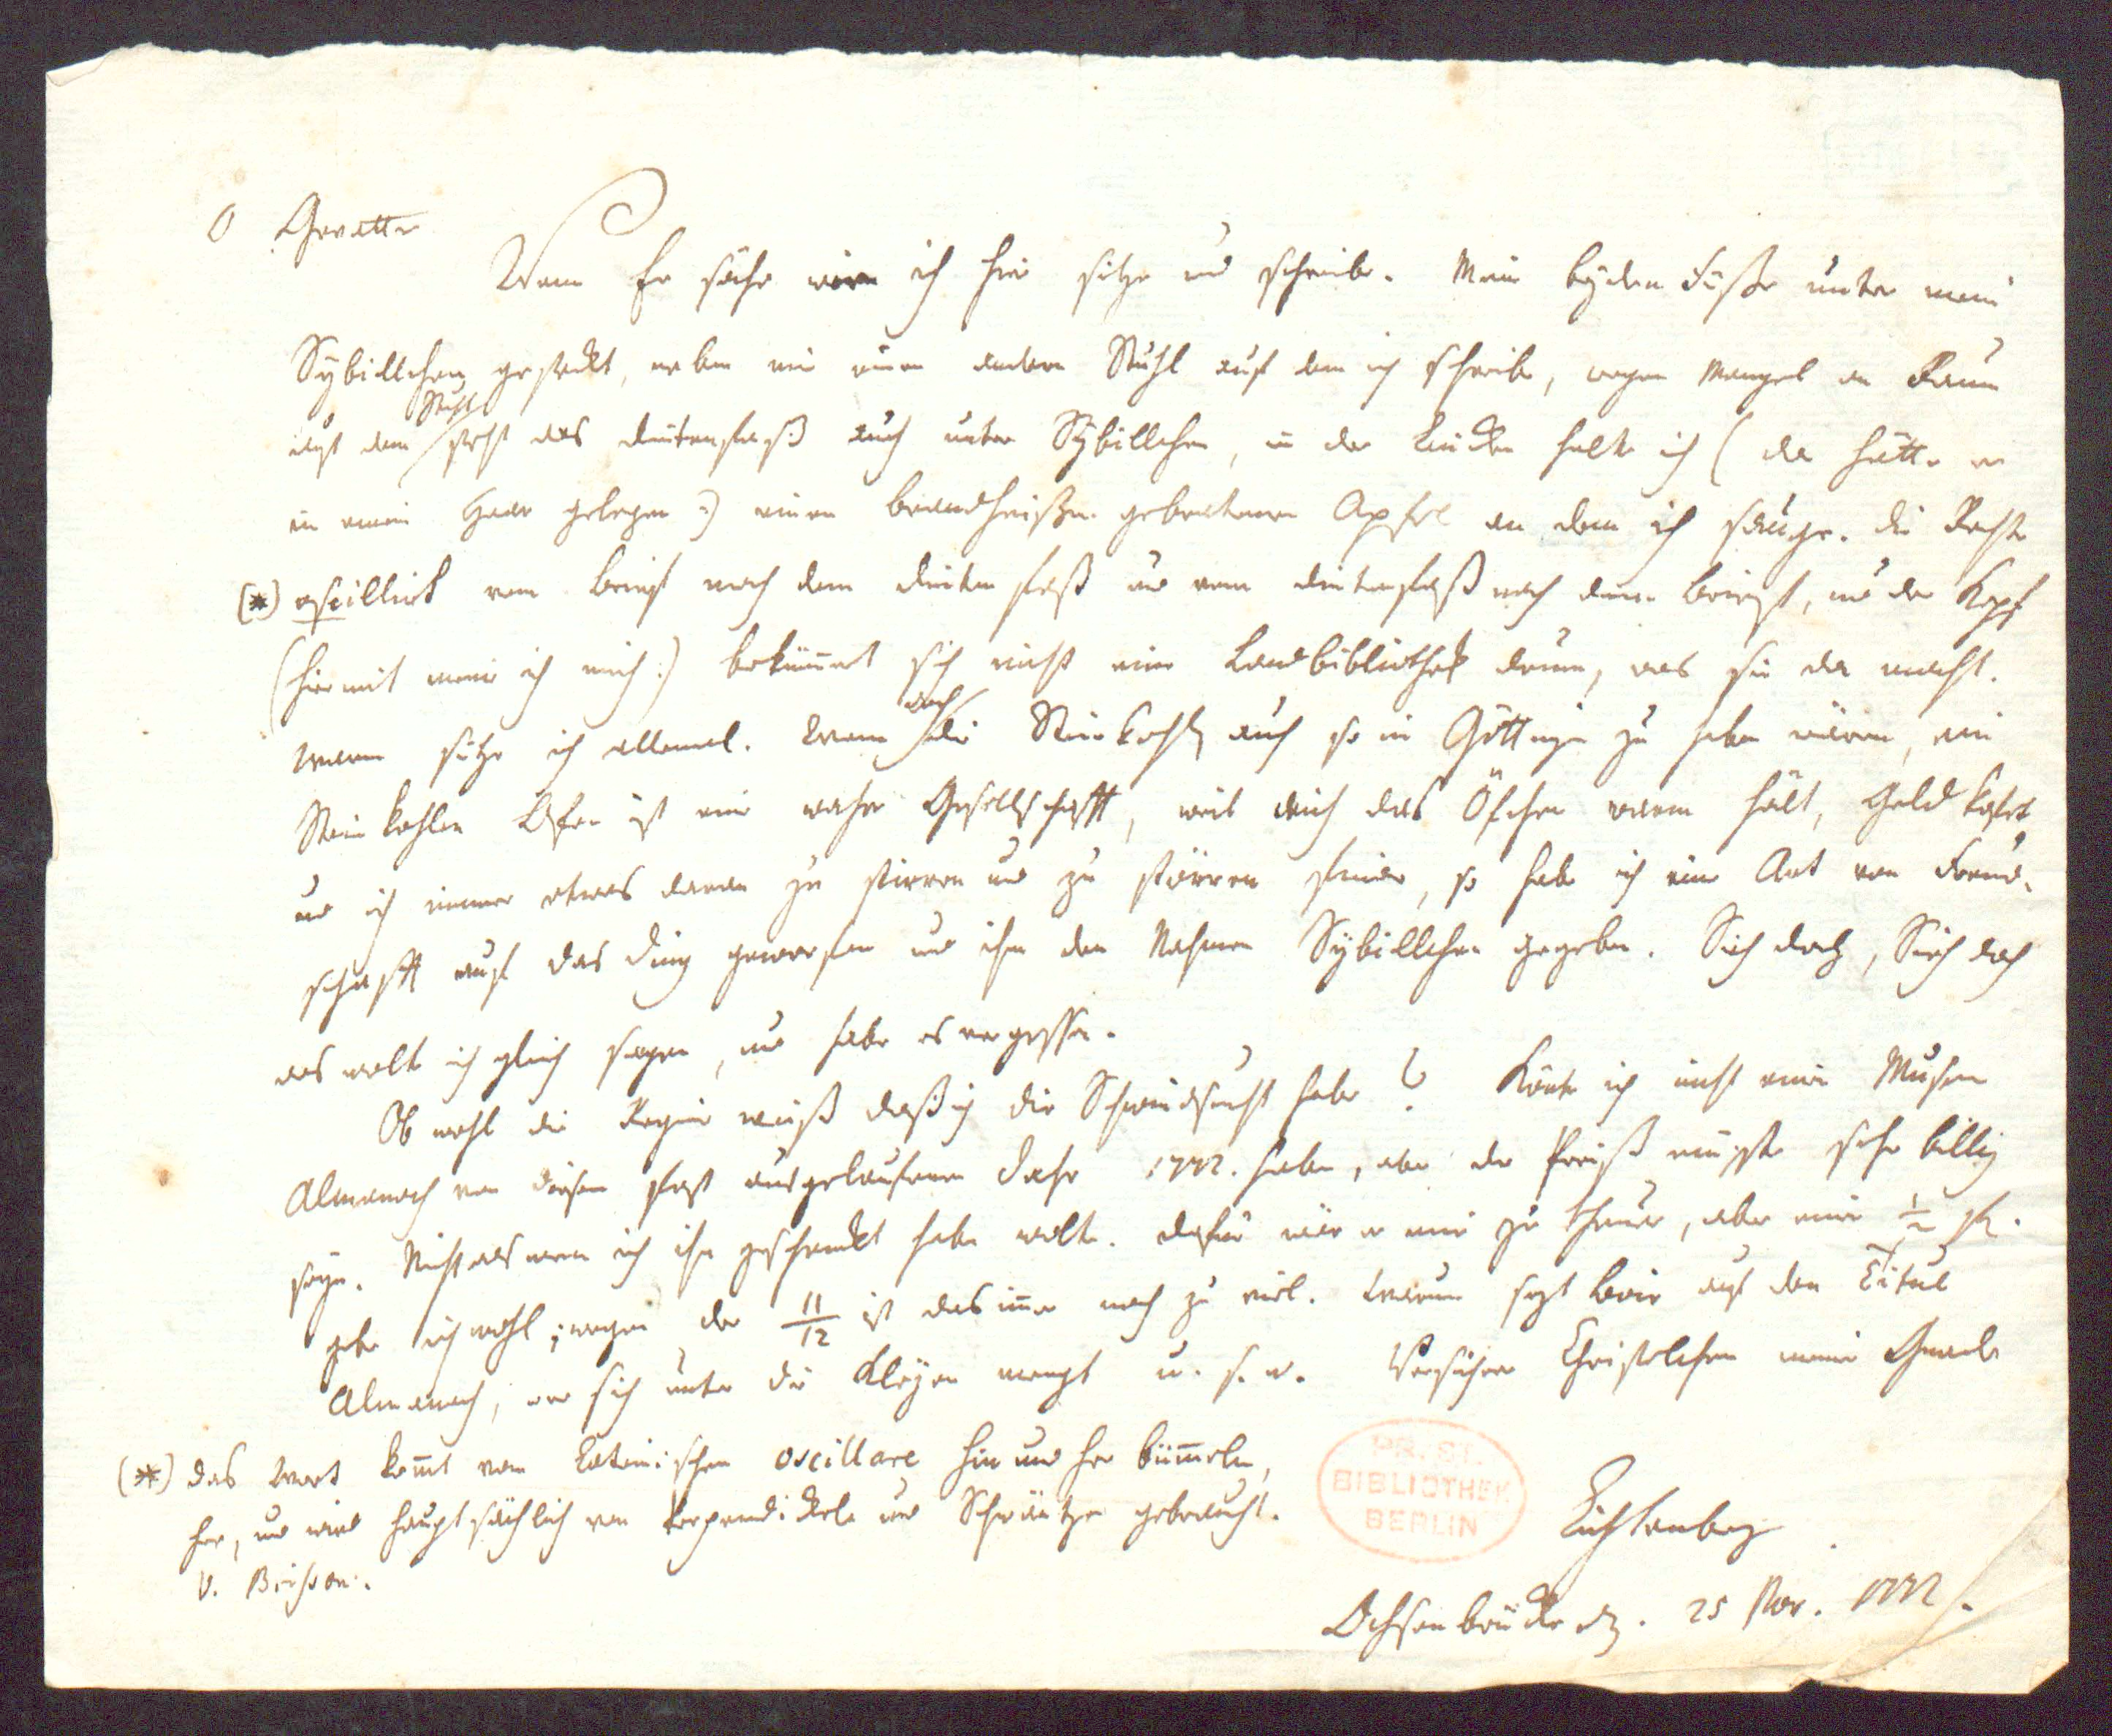 O Gevatter
Wenn Er sähe wie ich hier sitze und schreibe. Meine beyden Füße unter mein
Sybillchen gesteckt, neben mir einen andern Stuhl auf dem ich schreibe, wegen Mangel an Raum
auf dem Stuhl steht das Dintenfaß auch unter Sybillchen, in der Lincken halte ich (da hätte er
in mein Haar gelegen:) einen brandheißen gebratenen Apfel an dem ich sauge. Die Rechte
(*) oscillirt vom Brief nach dem Dintenfaß und vom Dintenfaß nach dem Brief, und der Kopf
(hiermit meine ich mich:) bekümmert sich nicht eine Landbibliothek drum, was sie da macht.
Warm sitze ich allemal. Wenn doch die Steinkohlen auch so in Göttingen zu haben wären, ein
Steinkohlen Ofen ist eine wahre Gesellschafft, weil mich das Öfchen warm hält, Geld kostet,
und ich immer etwas daran zu stirren und zu störren finde, so habe ich eine Art von Freund-
schafft auf das Ding geworfen und ihm den Nahmen Sybillchen gegeben. Sieh doch, Sieh doch
was wolte ich gleich sagen, und habe es vergessen.
Ob wohl die Regine weiß daß ich die Schwindsucht habe? Könte ich nicht einen Musen
Almanach von diesem fast ausgelaufenen Jahr 1772. haben, aber der Preiß müste sehr billig
seyn. Nicht als wenn ich ihn geschenckt haben wolte. Dafür wär er mir zu theuer, aber einen ½
gebe ich wohl; wegen der 11/12 ist das immer noch zu viel. Warum sezt Boie auf den Titul
Almanach, wer sich unter die Kleyen mengt u. s. w. Versichere Christelchen meine Gnade
Lichtenberg
Ochsenbrücke den. 25 Nov. 1772.
(*) das Wort kommt vom Lateinischen oscillare hin und her bümmeln,
her, und wird hauptsächlich von Perpendickeln und Schwäntzen gebraucht.
v.
PR. ST.
BIBLIOTHEK
BERLIN